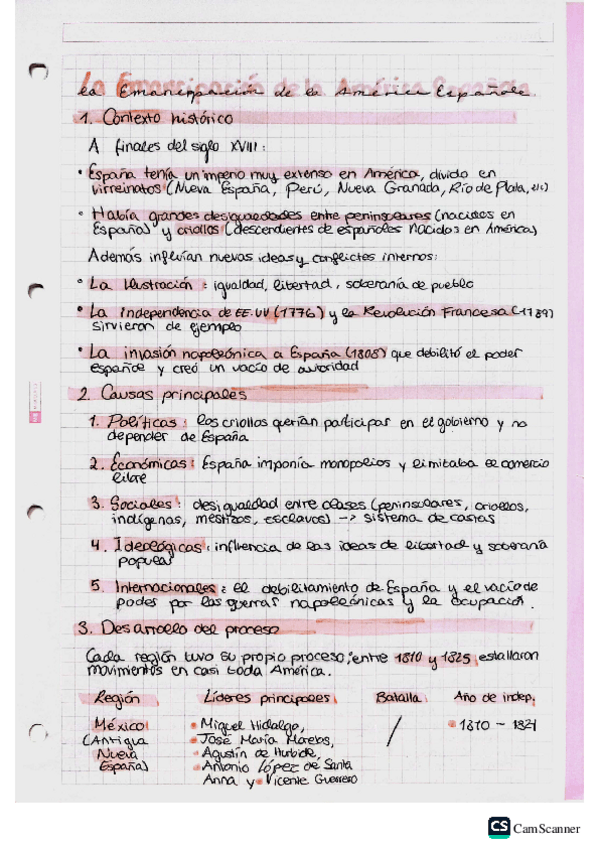 La Emancipación de la América Española
1. Contexto histórico
A finales del siglo XVIII:
• España tenía un imperio muy extenso en América, divido en
virreinatos (Nueva España, Perú, Nueva Granada, Río de Plata, etc)
• Había grandes desigualdades entre peninsulares (nacidos en
España) y criollos (descendientes de españoles nacidos en América)
Además influían nuevas ideas y conflictos internos:
• La Ilustración: igualdad, libertad, soberanía de pueblo
• La Independencia de EE.UU (1776) y la Revolución Francesa (1789)
sirvieron de ejemplo
• La invasión napoleónica a España (1808) que debilitó el poder
español y creó un vacío de autoridad
2. Causas principales
1. Políticas: los criollos querían participar en el gobierno y no
depender de España
2. Económicas: España imponía monopolios y limitaba el comercio
libre
3. Sociales: desigualdad entre clases (peninsulares, criollos,
indígenas, mestizos, esclavos) -> sistema de castas
4. Ideológicas: influencia de las ideas de libertad y soberanía
popular
5. Internacionales: el debilitamiento de España y el vacío de
poder por las guerras napoleónicas y la ocupación.
3. Desarrollo del proceso
Cada región tuvo su propio proceso; entre 1810 y 1825 estallaron
movimientos en casi toda América.
Región Líderes principales Batalla Año de indep.
México • Miguel Hidalgo, / • 1810 - 1821
(Antigua • José María Morelos,
Nueva • Agustín de Iturbide,
España) • Antonio López de Santa
Anna y • Vicente Guerrero
CS CamScanner